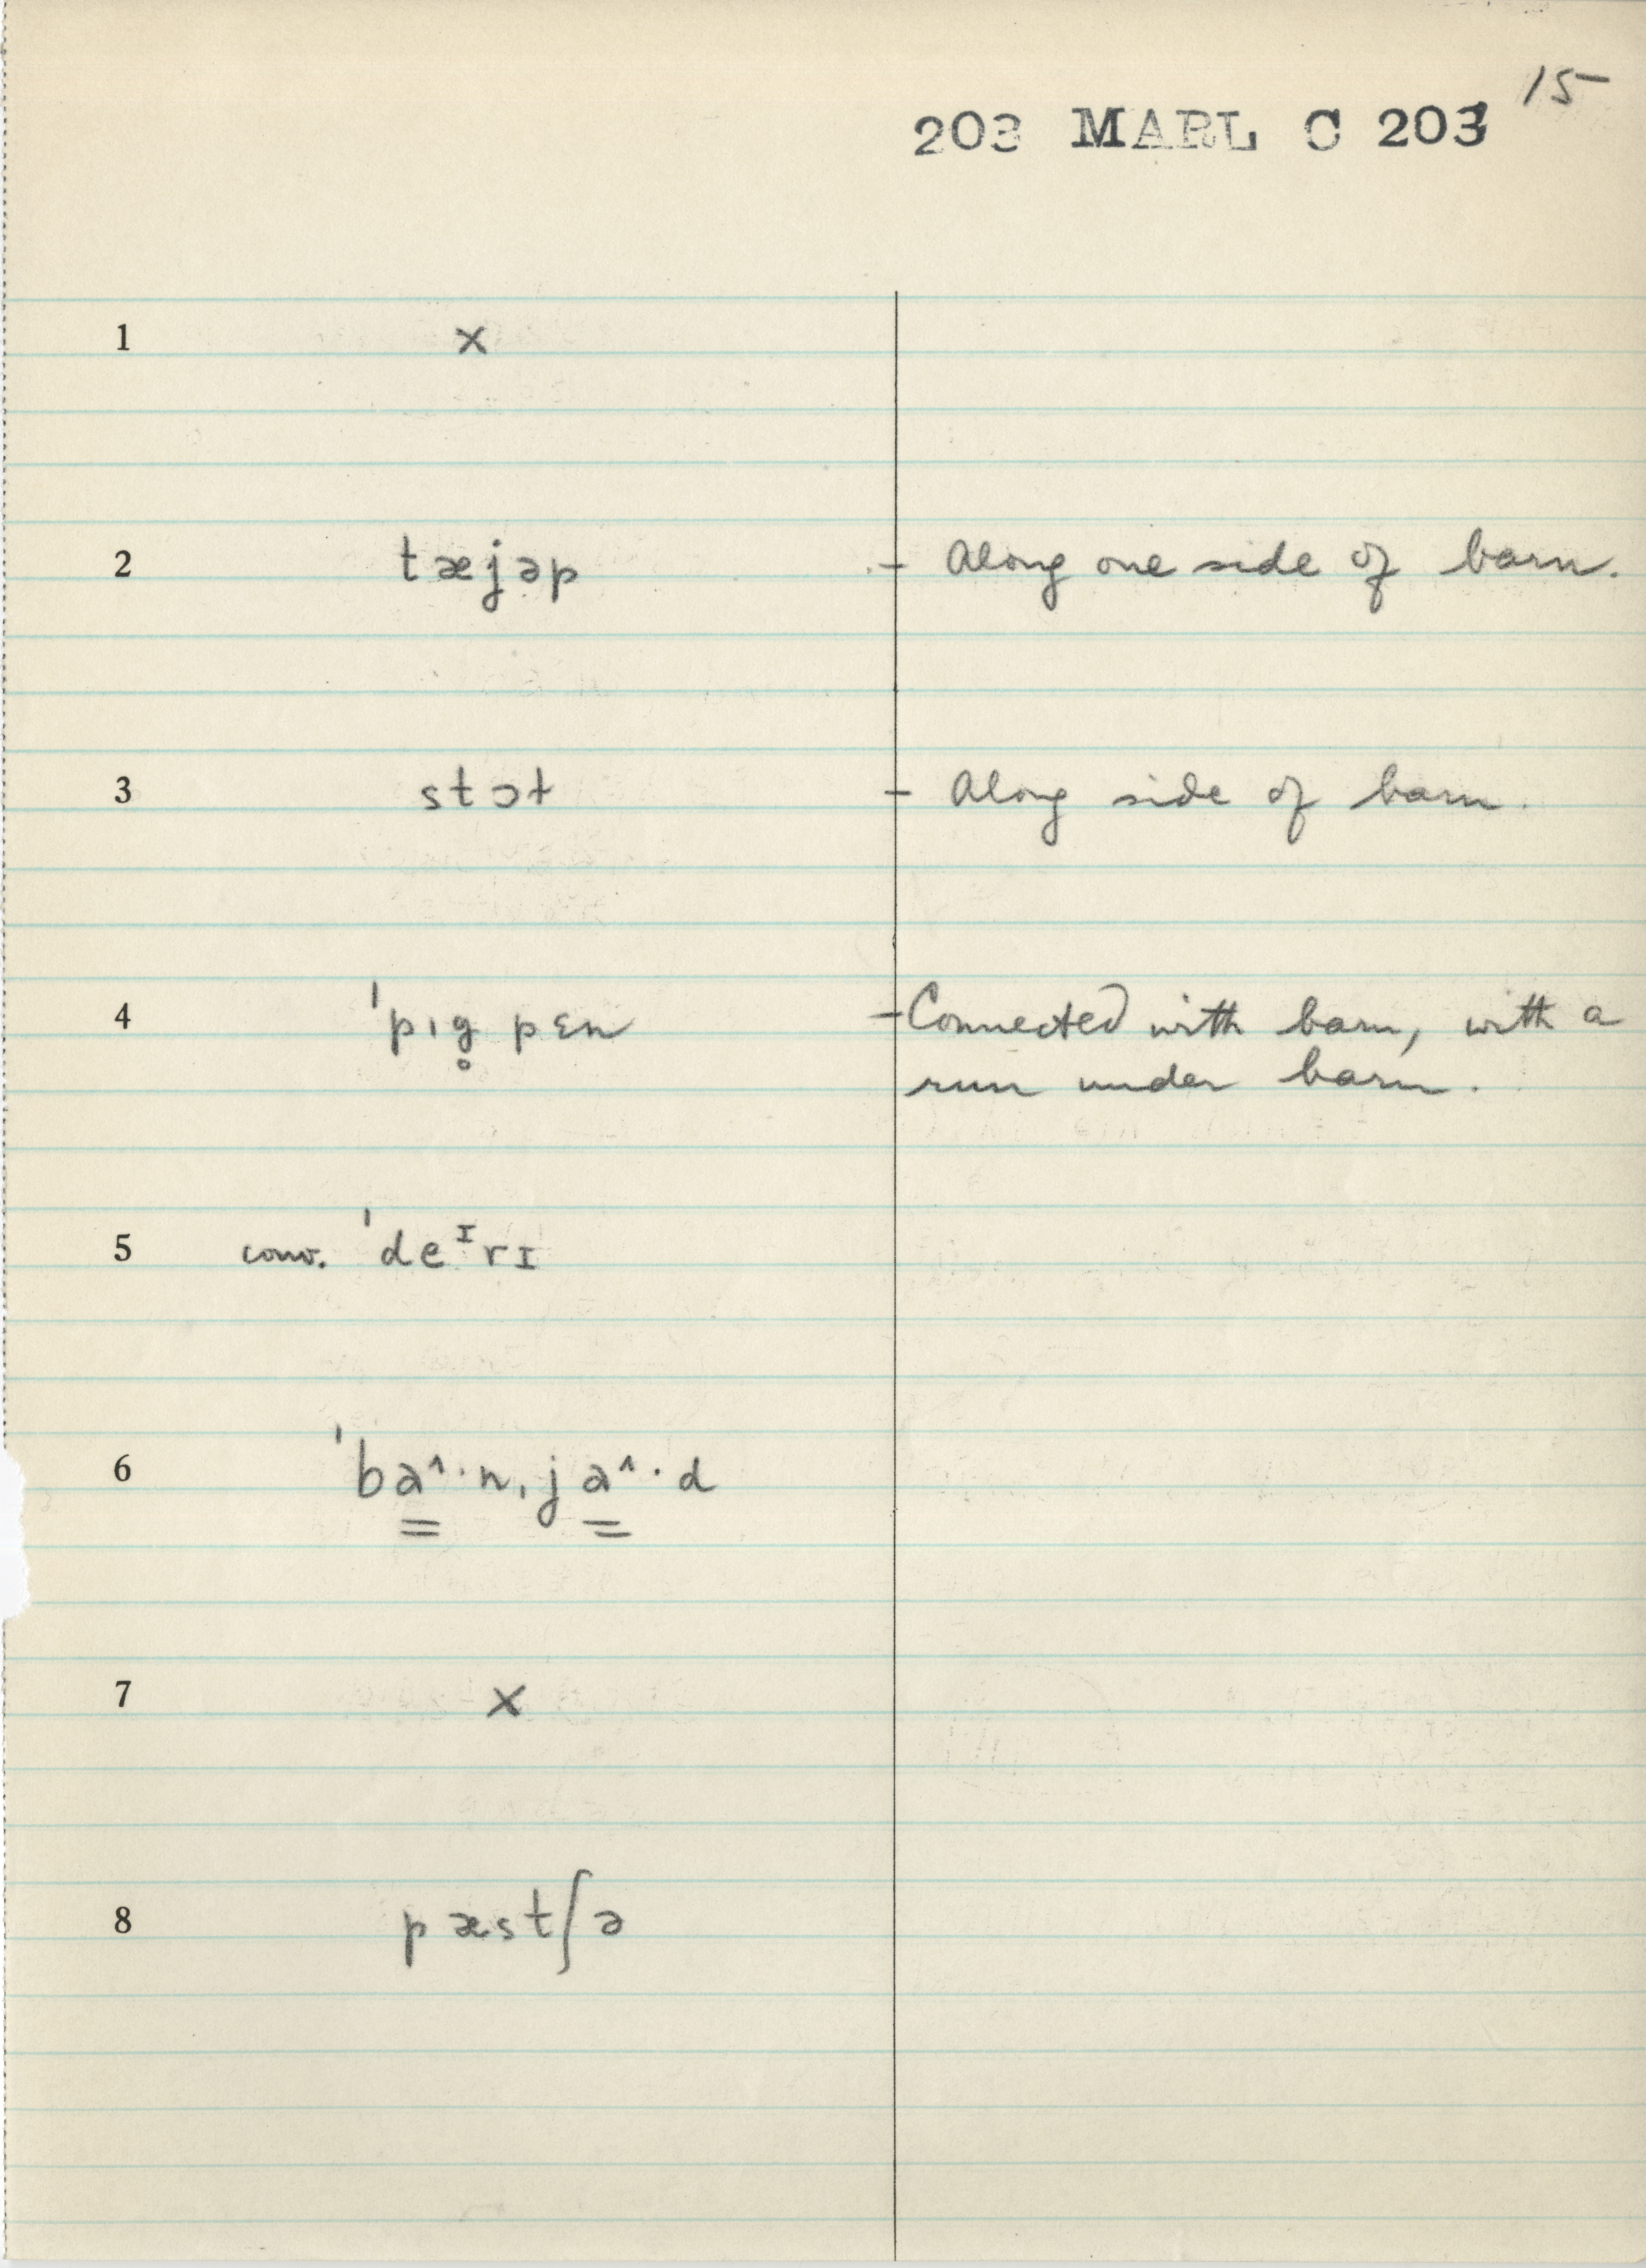 15
203 MARL C 203
1 x
2 tæjəp - Along one side of barn.
3 stɔt - Along side of barn.
4 ˈpıg̥ pɛn - Connected with barn, with a
run under barn.
5 conv. ˈdeᶦrɪ
6 ˈba̳^·nˌja̳^·d
7 x
8 pæstʃə